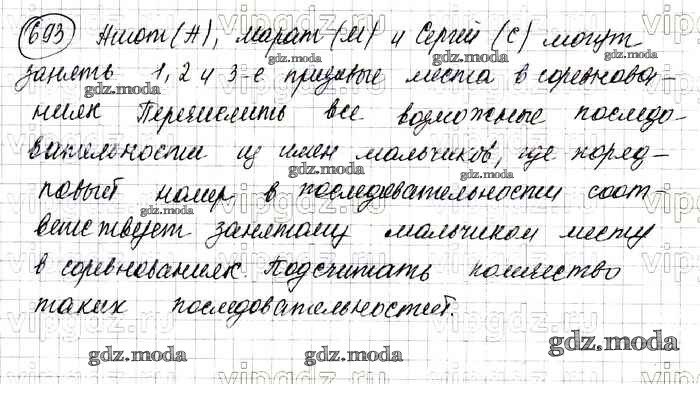 693 Антон (А), Марат (М) и Сергей (С) могут
занять 1, 2 и 3-е призовые места в соревнова-
ниях Перечислить все возможные последо-
вательности из имен мальчиков, где поряд-
ковый номер в последовательности соот
ветствует занятому мальчиком месту
в соревнованиях. Подсчитать количество
таких последовательностей.
gdz.moda
vipgdz.ru